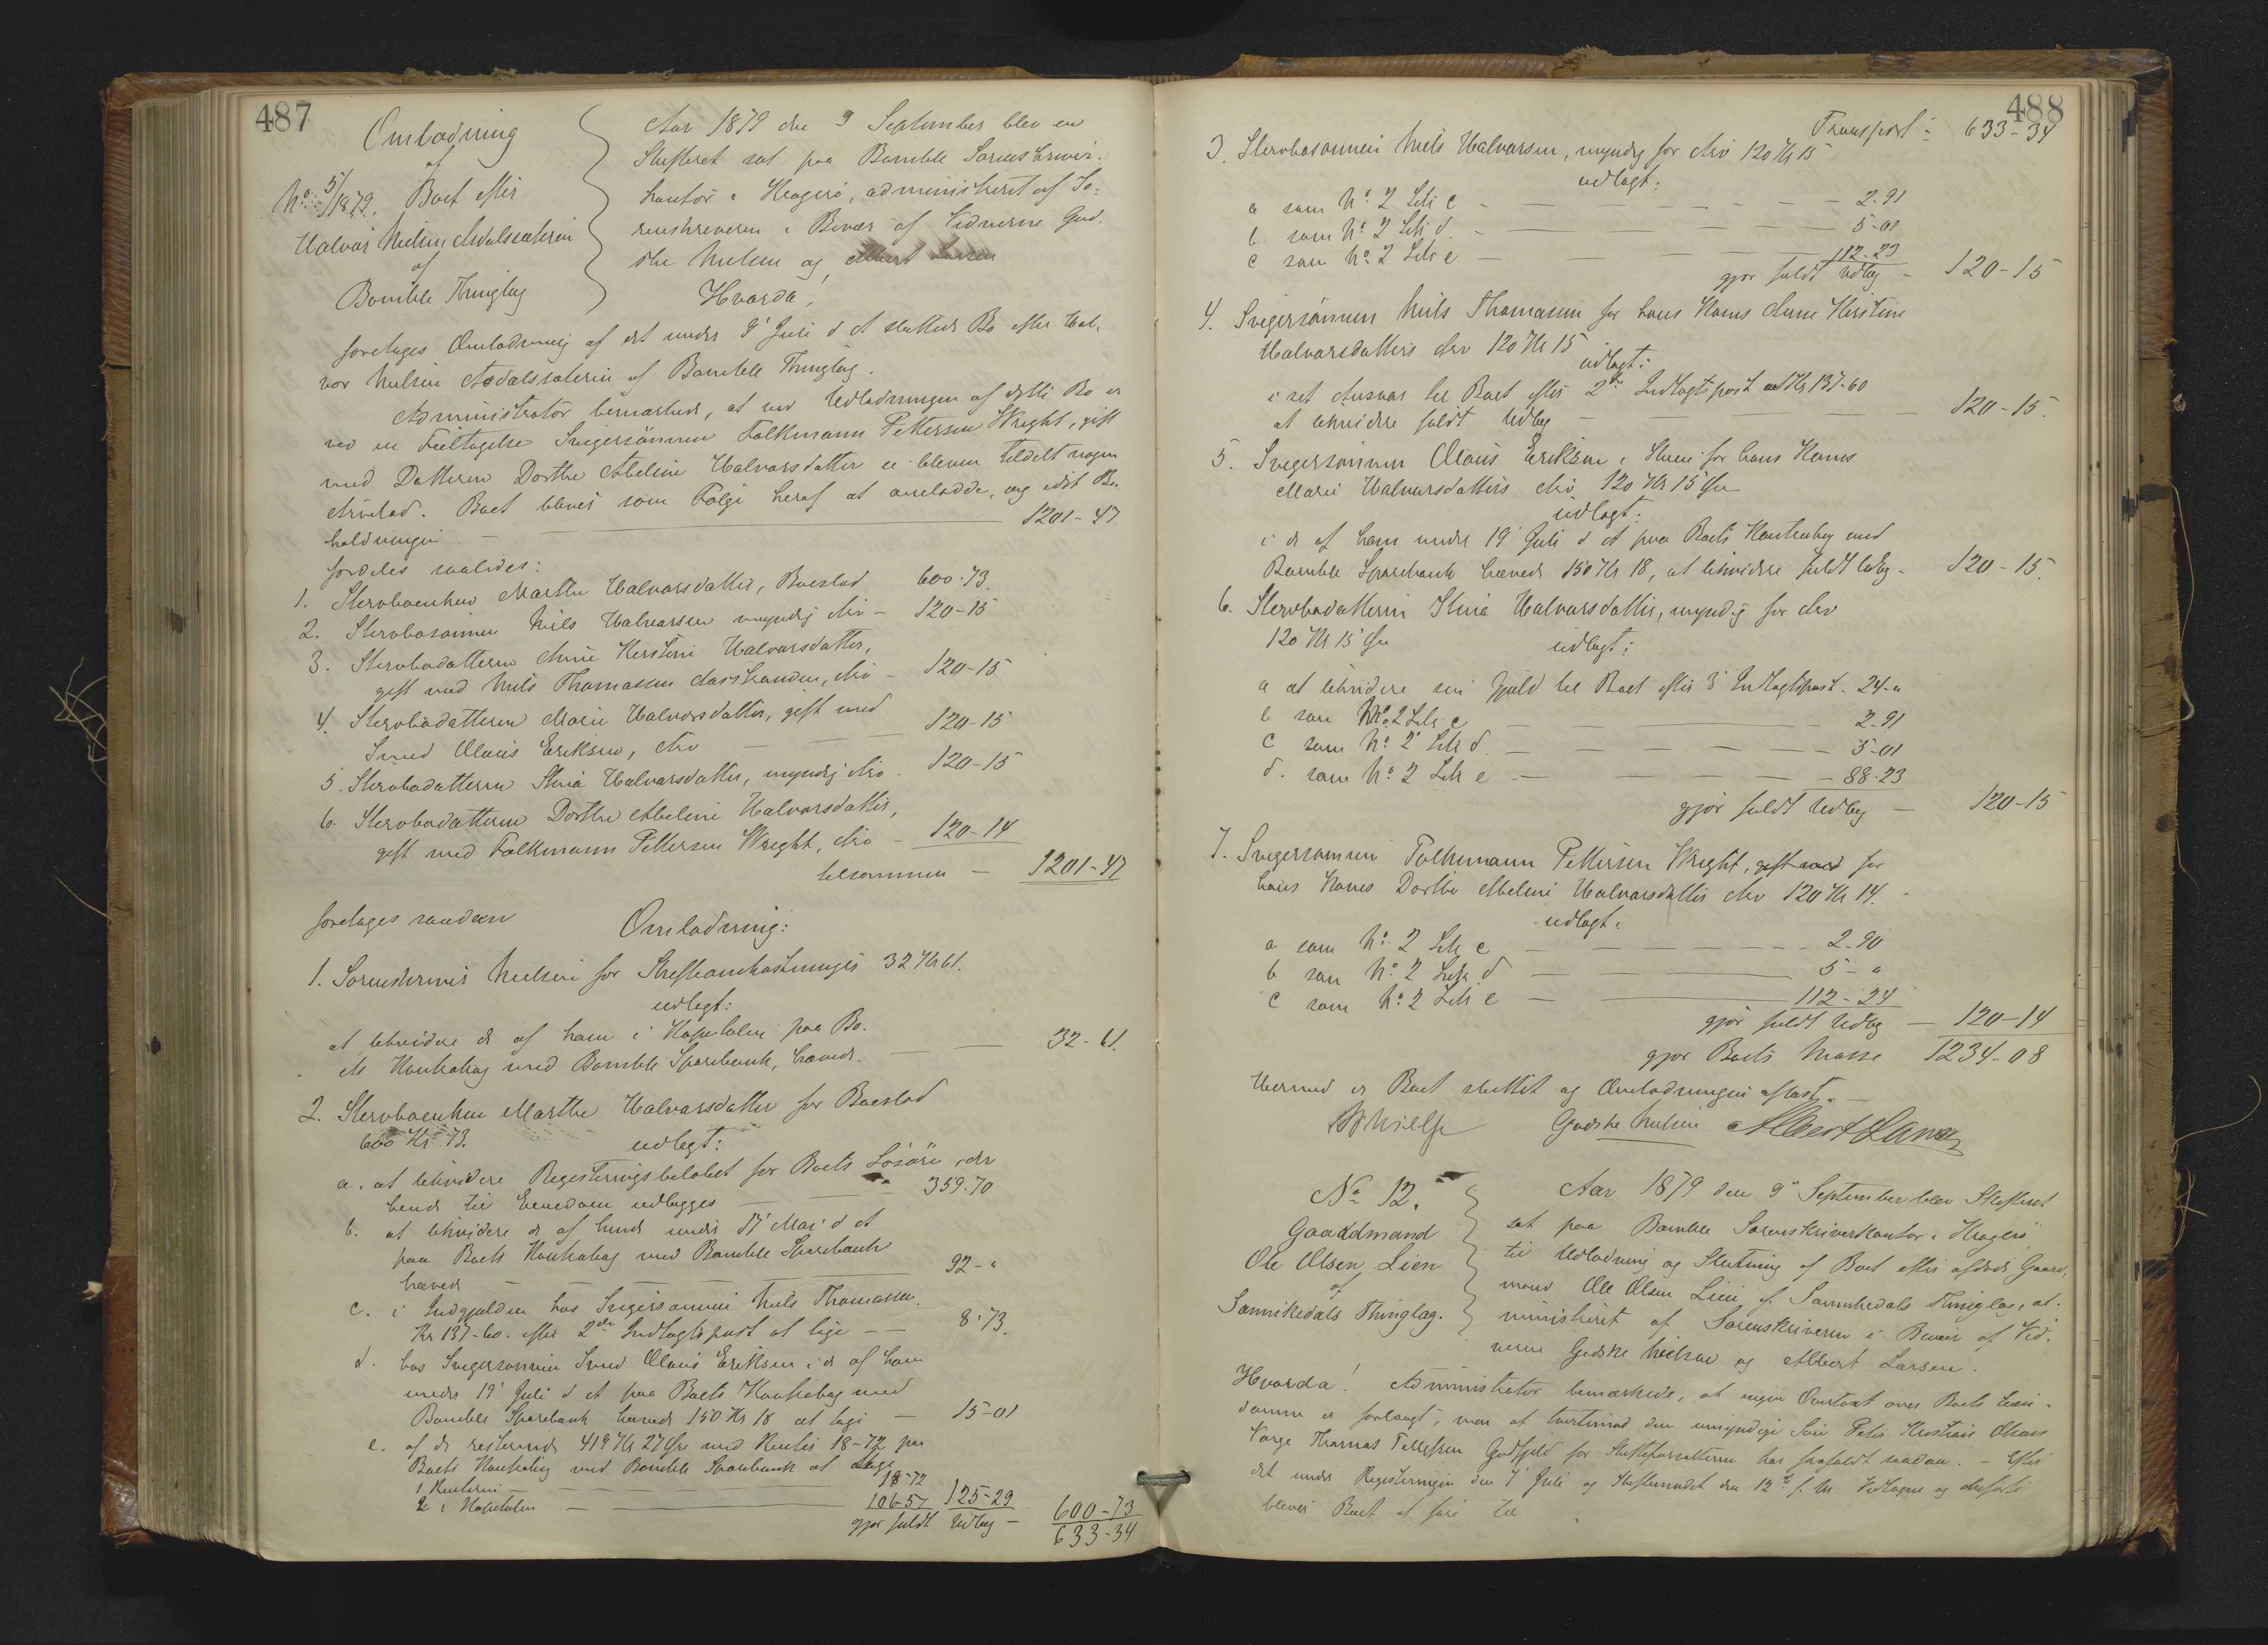 487
Omlodning
af
No 5/1879. Boet efter
Halvor Nielsen Aasdalssæteren
af
Bamble Thinglag
Aar 1879 den 9 September blev en
Skifteret sat paa Bamble Sorenskriver-
kontor i Kragerø, administreret af So-
renskriveren i Bivær af Vidnerne God-
ske Nielsen og Albert Larsen
Hvorda!
foretages Omlodning af det under 9' Juli d A sluttede Bo efter Hal-
vor Nielsen Aasdalssæteren af Bamble Thinglag.
Administrator bemærkede, at ved Udlodningen af dette Bo er
ved en Feiltagelse Svigersønnen Folkmann Pettersen Wright, gift
med Datteren Dorthe Abeline Halvorsdatter ei bleven tildelt nogen
Arvelod. Boet bliver som Følge heraf at omlodde, og idet Be-
holdningen — 1201-47
fordeles saaledes:
1. Stervboenken Marthe Halvorsdatter, Boeslod 600-73.
2. Stervbosønnen Niels Halvorsen myndig Arv - 120-15
3. Stervbodatteren Anne Kirstine Halvorsdatter,
gift med Niels Thomassen, Arv - 120-15
4. Stervbodatteren Marie Halvorsdatter, gift med
Smed Olaus Eriksen, Arv — 120-15
5. Stervbodatteren Stina Halvorsdatter, myndig Arv - 120-15
6. Stervbodatteren Dorthe Abeline Halvorsdatter,
gift med Folkmann Pettersen Wright, Arv - 120-14
tilsammen — 1201-47
foretages saadan Omlodning:
1. Sorenskriver Nielsen for Skifteomkostninger 32 Kr 61.
udlagt:
at likvidere de af ham i Kapitalen paa Bo-
ets Kontrabog med Bamble Sparebank, hævede — 32-61.
2. Stervboenken Marthe Halvorsdatter for Boeslod
600 Kr 73. udlagt:
a. at likvidere Registeringsbeløbet for Boets Løsøre, der
hende til Eiendom udlægges — 359-70
b. at likvidere de af hende under 17' Mai d A
paa Boets Kontrabog med Bamble Sparebank
hævede — 92-"
c. i Indgjælden hos Svigersønnen Niels Thomassen
Kr 137-60. efter 2den Indtægtspost at tage — 8-73.
d. hos Svigersønnen Smed Olaus Eriksen i de af ham
under 19' Juli d A paa Boets Kontrabog med
Bamble Sparebank hævede 150 Kr 18 at tage — 15-01
e. af de resterende 419 Kr 27 Øre med Renter 18-72 paa
Boets Kontrabog med Bamble Sparebank at tage
1 Renterne — 18-72
2 i Kapitalen — 106-57 125-29
gjør fuldt Udlæg — 600-73
633-34
488
Transport: 633-34
3. Stervbosønnen Niels Halvorsen, myndig for Arv 120 Kr 15
udlagt:
a som No 2 Litr c — 2-91
b som No 2 Litr d. — 5-01
c som No 2 Litr e — 112-23
gjør fuldt Udlæg — 120-15
4. Svigersønnen Niels Thomassen for hans Kones Anne Kirstine
Halvorsdatters Arv 120 Kr 15
udlagt:
i sit Ansvar til Boet efter 2den Indtægtspost Kr 137-60
at likvidere fuldt Udlæg — 120-15.
5. Svigersønnen Olaus Eriksen for hans Kones
Marie Halvorsdatters Arv 120 Kr 15 Øre
udlagt:
i de af ham under 19' Juli d A paa Boets Kontrabog med
Bamble Sparebank hævede 150 Kr 18, at likvidere fuldt Udlæg — 120-15.
6. Stervbodatteren Stina Halvorsdatter, myndig for Arv
120 Kr 15 Øre udlagt:
a at likvidere sin Gjæld til Boet efter 3' Indtægtspost - 24-"
b som No 2 Litr c — 2-91
c som No 2 Litr d. — 5-01
d. som No 2 Litr e — 88-23
gjør fuldt Udlæg — 120-15
7. Svigersønnen Folkmann Pettersen Wright, gift med for
hans Kones Dorthe Abeline Halvorsdatters Arv 120 Kr 14.
udlagt:
a som No 2 Litr c — 2-90
b som No 2 Litr d — 5-"
c som No 2 Litr e — 112-24
gjør fuldt Udlæg — 120-14
gjør Boets Masse 1234-08
Hermed er Boet sluttet og Omlodningen aflæst. —
Godske Nielsen Albert Larsen
No 12.
Gaardmand
Ole Olsen Lien
af
Sannikedals Thinglag.
Aar 1879 den 9' September blev Skifteret
sat paa Bamble Sorenskriverkontor i Kragerø
til Udlodning og Slutning af Boet efter afdøde Gaard-
mand Ole Olsen Lien af Sannikedals Thinglag, ad-
ministreret af Sorenskriveren i Bivær af Vid-
nerne Godske Nielsen og Albert Larsen.
Hvorda! Administrator bemærkede, at ingen Overtaxt over Boets Eien-
domme er forlangt, men at tvertimod den umyndige Søn Peter Kristian Olsens
Værge Thomas Tellefsen Godfjeld for Skifteforvalteren har frafaldt saadan. - Efter
det under Registeringen den 7' Juli og Skiftemødet den 12te f. M. Vedtagne og Anførte
bliver Boet at føre til